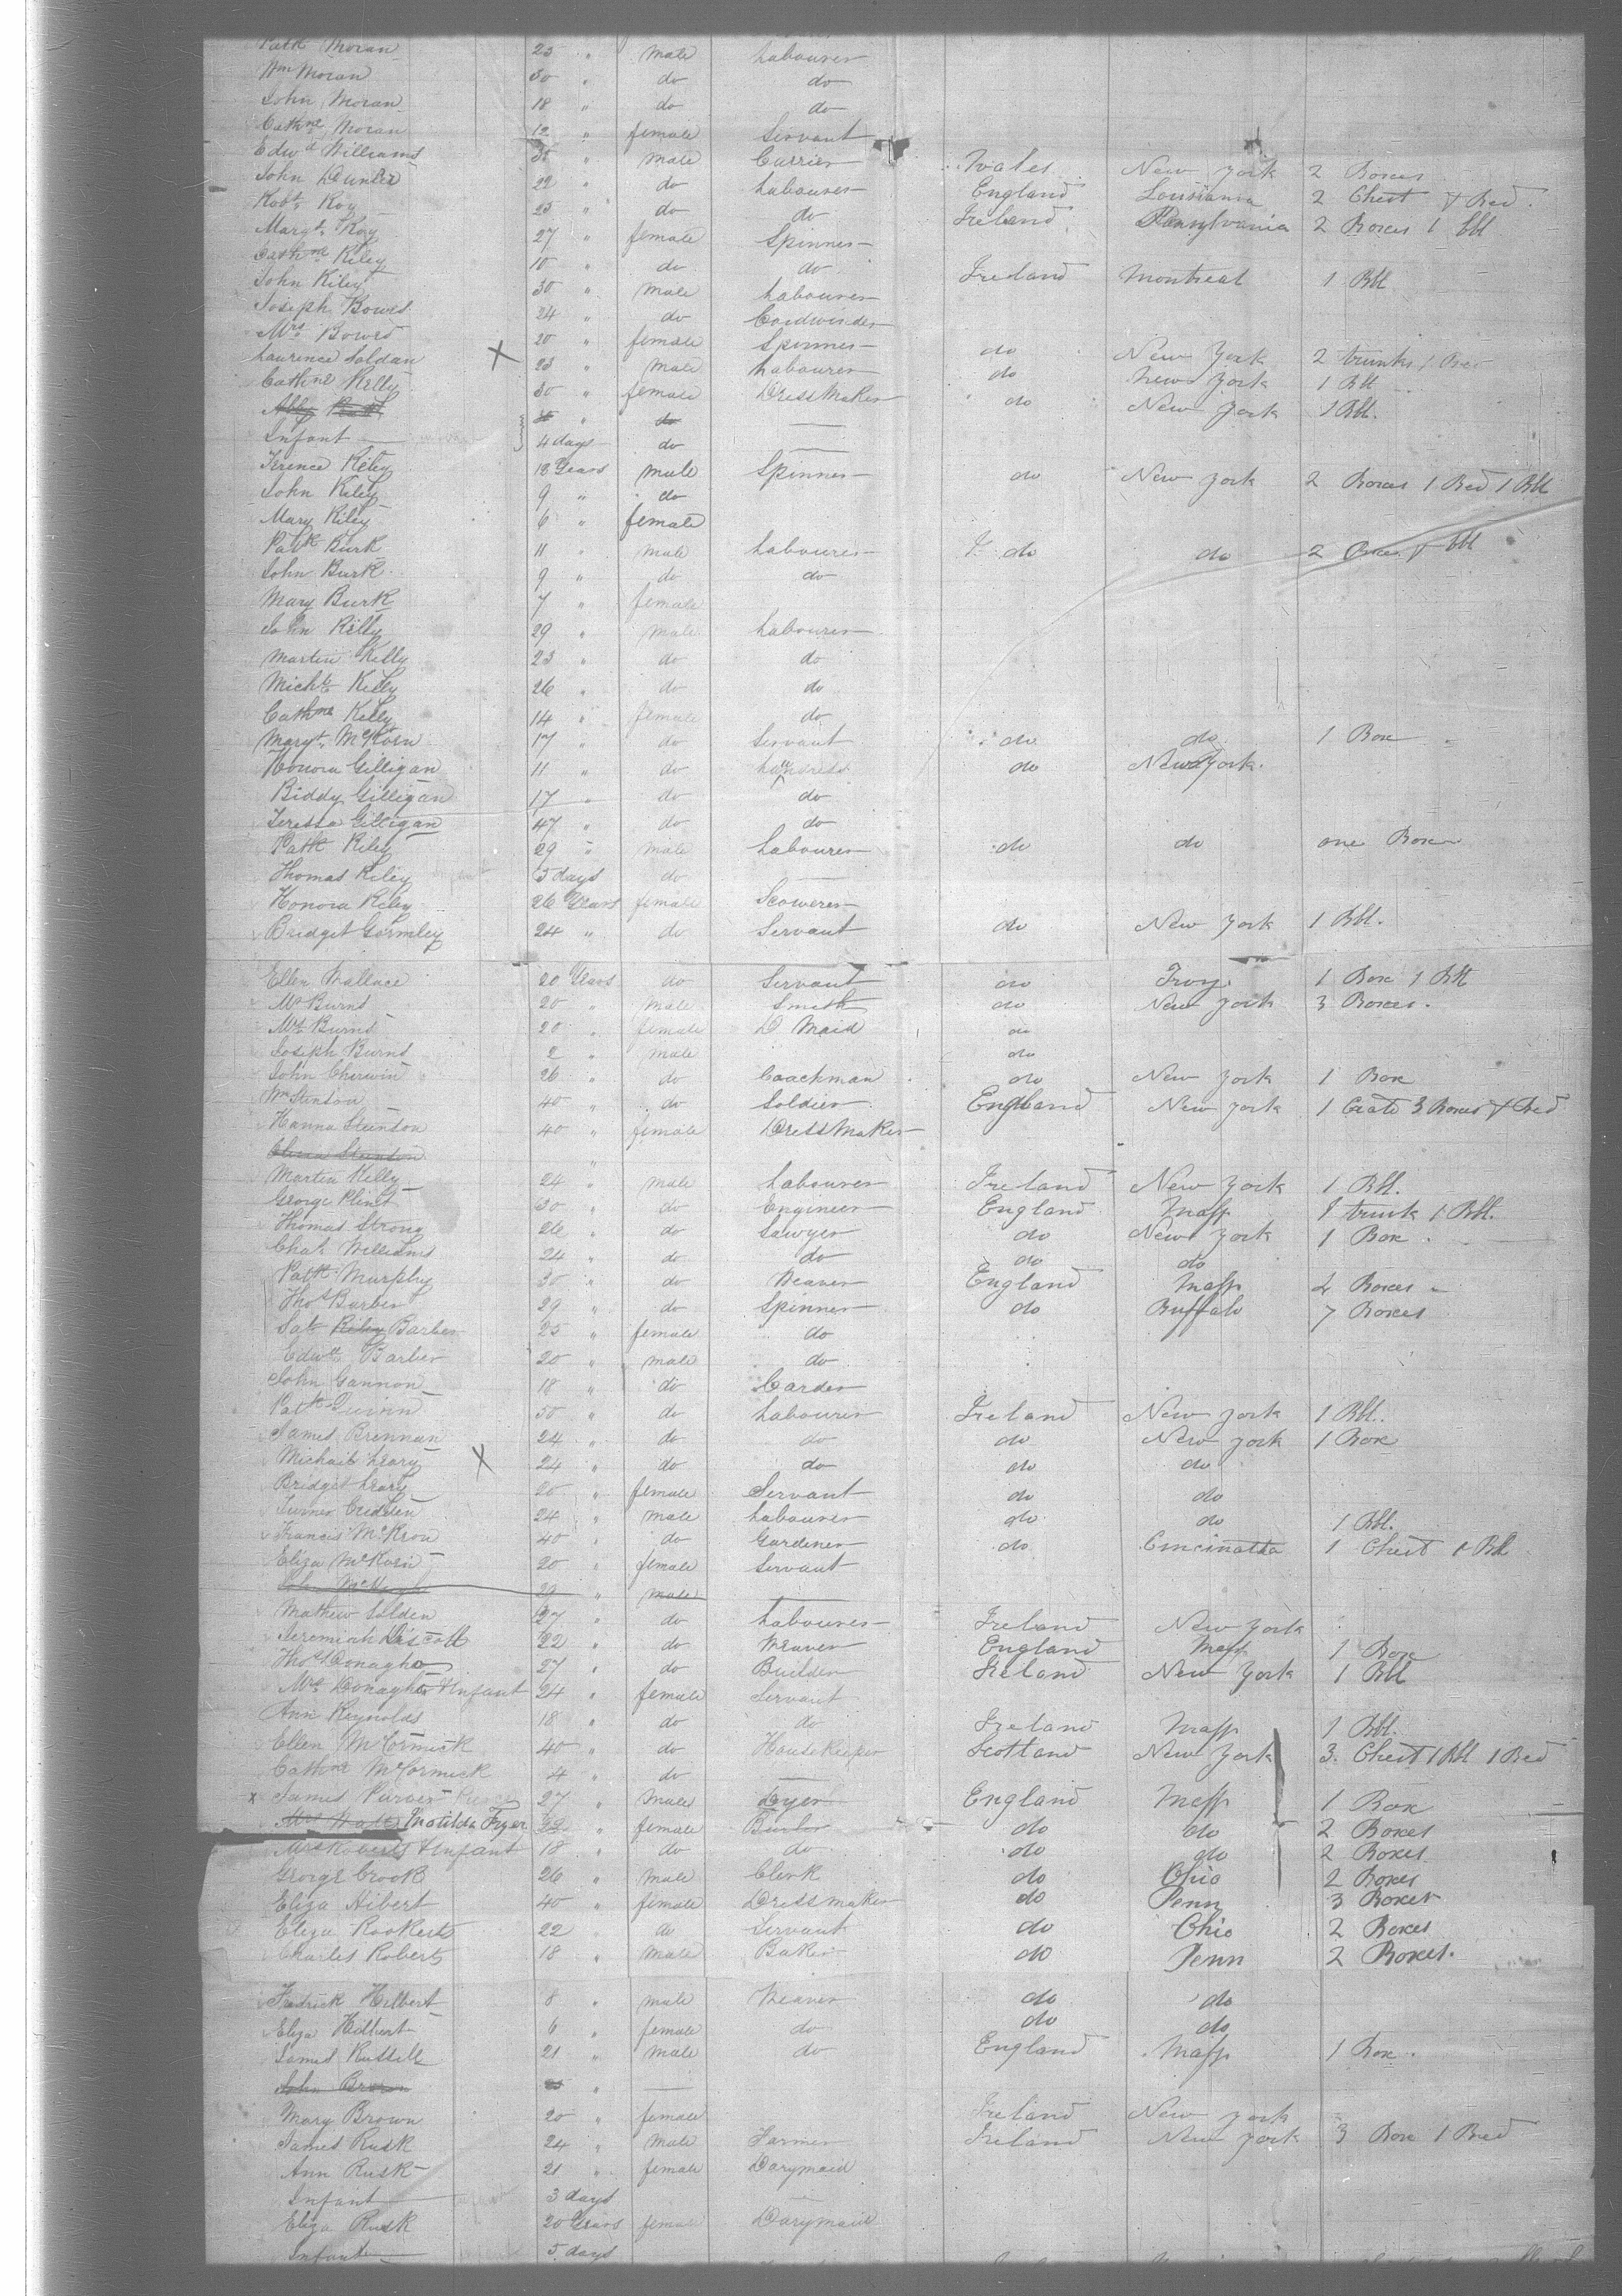 Patk Moran 25 " male Labourer
Wm Moran 30 " do do
John Moran 18 " do do
Cathne Moran 12 " female Servant
Edwd Williams 35 " male Currier Wales New York 2 Boxes
John 22 " do Labourer England Louisiana 2 Chest & Bed
Robt Roy 23 " do do Ireland Pennsylvania 2 Boxes 1 bbl
Margt Roy 27 " female Spinner
Cathne Riley 10 " do do Ireland Montreal 1 Bbl
John Riley 30 " male Labourer
Joseph Bowes 24 " do Cordwinder
Mrs Bowes 20 " female Spinner do New York 2 trunks 1 Bed
Laurence Soldan X 23 " Male Labourer do New York 1 Bbl
Cathne Kelly 30 " female Dress Maker do New York 1 Bbl.
Infant 4 days do
Terence Riley 18 Years male Spinner do New York 2 Boxes 1 Bed 1 Bbl
John Riley 9 " do
Mary Riley 6 " female
Patk Burk 11 " male Labourer do do 2 Boxes 1 bbl
John Burk 9 " do do
Mary Burk 7 " female
John Killy 29 " male Labourer
Martin Killy 23 " do do
Michl Killy 26 " do do
Cathne Killy 14 " female do
Margt McKoen 17 " do Servant do do 1 Box
Honora Gilligan 11 " do do New York
Biddy Gilligan 17 " do do
Teressa Gilligan 47 " do do
Patk Riley 29 " male Labourer do do one Box
Thomas Riley 5 days do
Honora Riley 26 Years female Scowerer
Bridget Gormley 24 " do Servant do New York 1 Bbl.
Ellen Wallace 20 Years do Servant do Troy 1 Box 1 Bbl
Mr Burns 20 " male Smith do New York 3 Boxes.
Mrs Burns 20 " female D Maid do
Joseph Burns 2 " male do
John Cherwin 26 " do Coachman do New York 1 Box
Wm Stenson 40 " do Soldier England New York 1 Crate 3 Boxes & Bed
Hanna Steinson 40 " female Dress Maker
Eliza Steinson "
Martin Killy 24 " male Labourer Ireland New York 1 Bbl.
George Plint 30 " do Engineer England Mass 1 trunk 1 Bbl.
Thomas Strong 26 " do Sawyer do New York 1 Box
Chas Williams 24 " do do do do
Patk Murphy 30 " do Weaver England Mass 4 Boxes
Thos Barber 29 " do Spinner do Buffalo 7 Boxes
Barber 25 " female do
Edwd Barber 20 " male do
John Gannon 18 " do Carder
Patk 50 " do Labourer Ireland New York 1 Bbl.
James Brennan 24 " do do do New York 1 Box
Michail Leary X 24 " do do do do
Bridget Leary 20 " female Servant do do
24 " male Labourer do do 1 Bbl.
Francis McKron 40 " do Gardener do Cincinatta 1 Chest 1 Bbl
Eliza McKoen 20 " female Servant
29 " male
Mathew Solden 27 " do Labourer Ireland New York
Jeremiah Discoll 22 " do Weaver England Mass 1 Box
Thos Donagho 27 " do Builder Ireland New York 1 Bbl
Mrs Donagho & Infant 24 " female Servant
Ann Reynolds 18 " do do Ireland Mass 1 Bbl.
Ellen McCormick 40 " do House Keeper Scotland New York 3 Chest 1 Bbl 1 Bed
Cathne McCormick 4 " do
x James Purver 27 " Male Dyer England Mass 1 Box
Matilda Fryer 32 " female do do 2 Boxes
Mrs Roberts & Infant 18 " do do do do 2 Boxes
George Crook 26 " male Clerk do Ohio 2 Boxes
Eliza Hibert 40 " female Dressmaker do Penn 3 Boxes
Eliza 22 do Servant do Ohio 2 Boxes
Charles Roberts 18 " male Baker do Penn 2 Boxes.
Fredrick Hilbert 8 " male Weaver do do
Eliza Hilbert 6 " female do do do
James Russill 21 " male do England Mass 1 Box.
John Brown "
Mary Brown 20 " female Ireland New York
James Rusk 24 " Male Farmer Ireland New York 3 Box 1 Bed
Ann Rusk 21 " female Darymaid
Infant 3 days
Eliza Rusk 20 Years female Darymaid
Infant 5 days